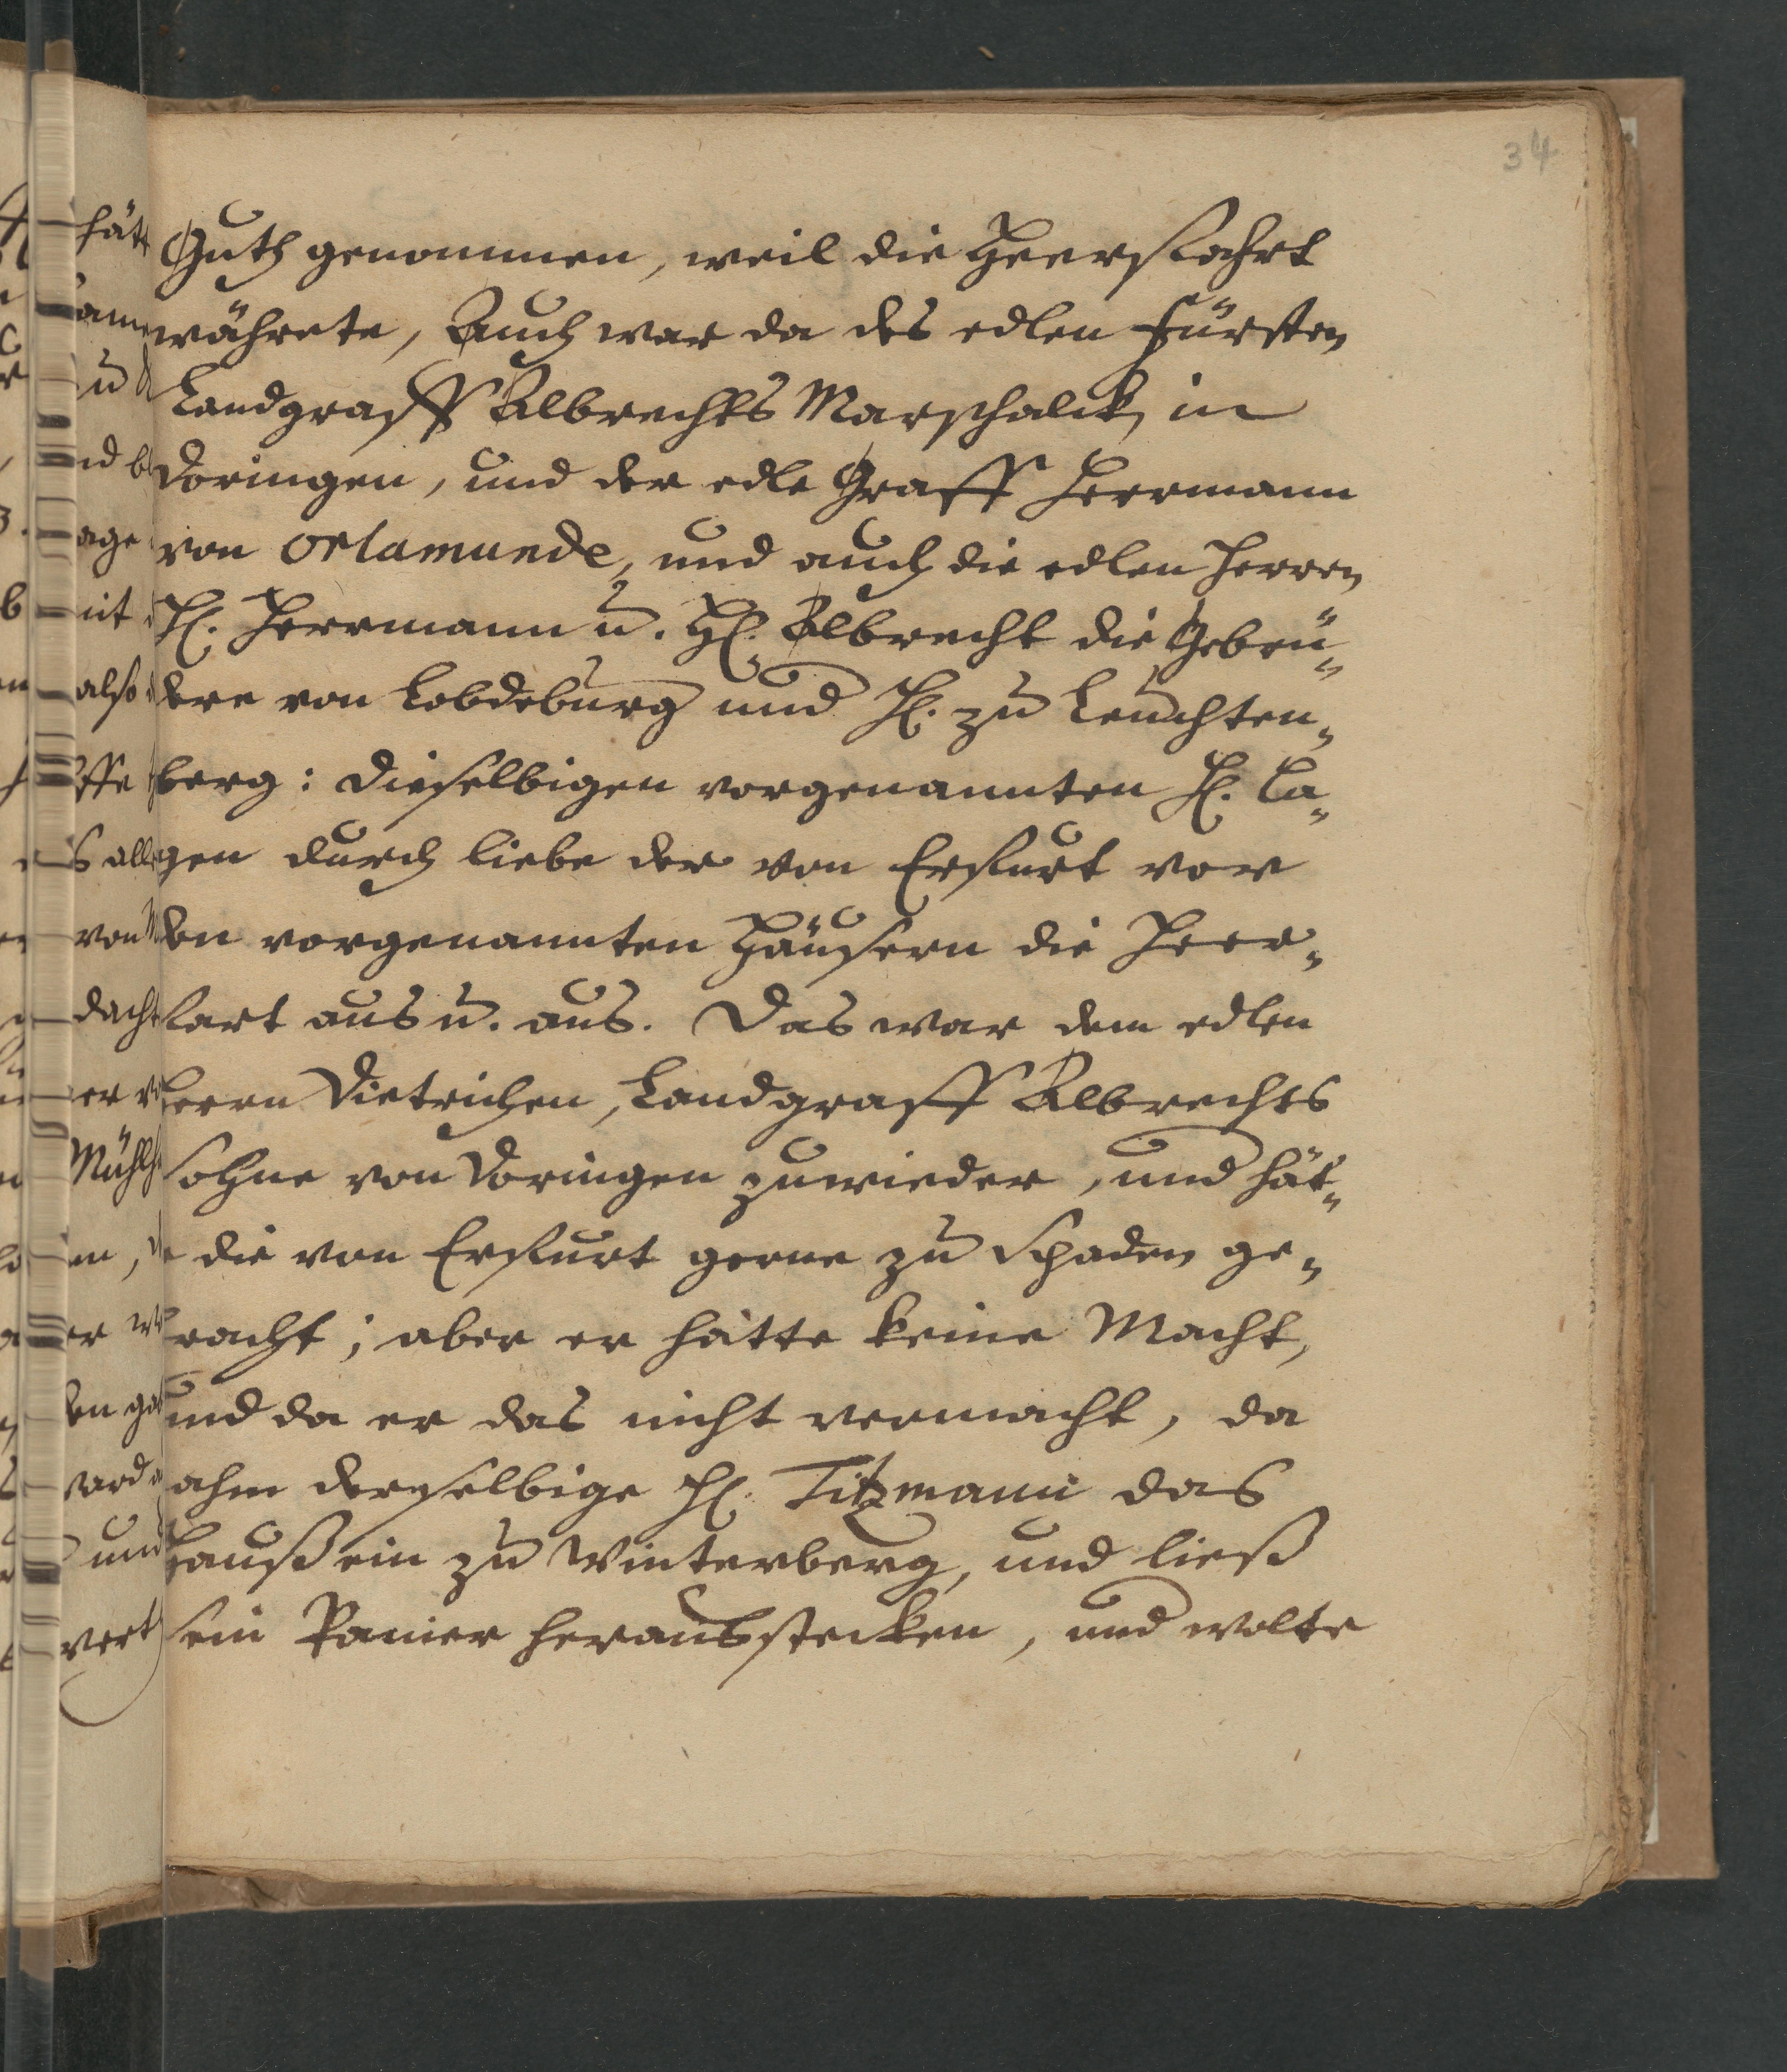 34
Guth genommen, weil die Heersfahrt
währete, Auch war da des edlen Fürsten
Landgraff Albrechts Marschalck in
Doringen, und der edle Graff Herrmann
von Orlamunde, und auch die edlen Herren
H. Herrmann u. H. Albrecht die Gebrü„
dere von Lobdeburg und H. zu Leuchten„
berg: Dieselbigen vorgenannten H. La„
gen durch liebe der von Erffurt vor
den vorgenannten Häusern die Heer„
fart aus u. aus. Das war dem edlen
Herrn Dietrichen, Landgraff Albrechts
Sohne von Doringen zuwieder, und hät„
te die von Erffurt gerne zu Schaden ge„
bracht; aber er hätte keine Macht,
und da er das nicht vermacht, da
nahm derselbige H. Titzmann das
Hauß ein zu Winterberg, und ließ
sein Panier herausstecken, und wolte